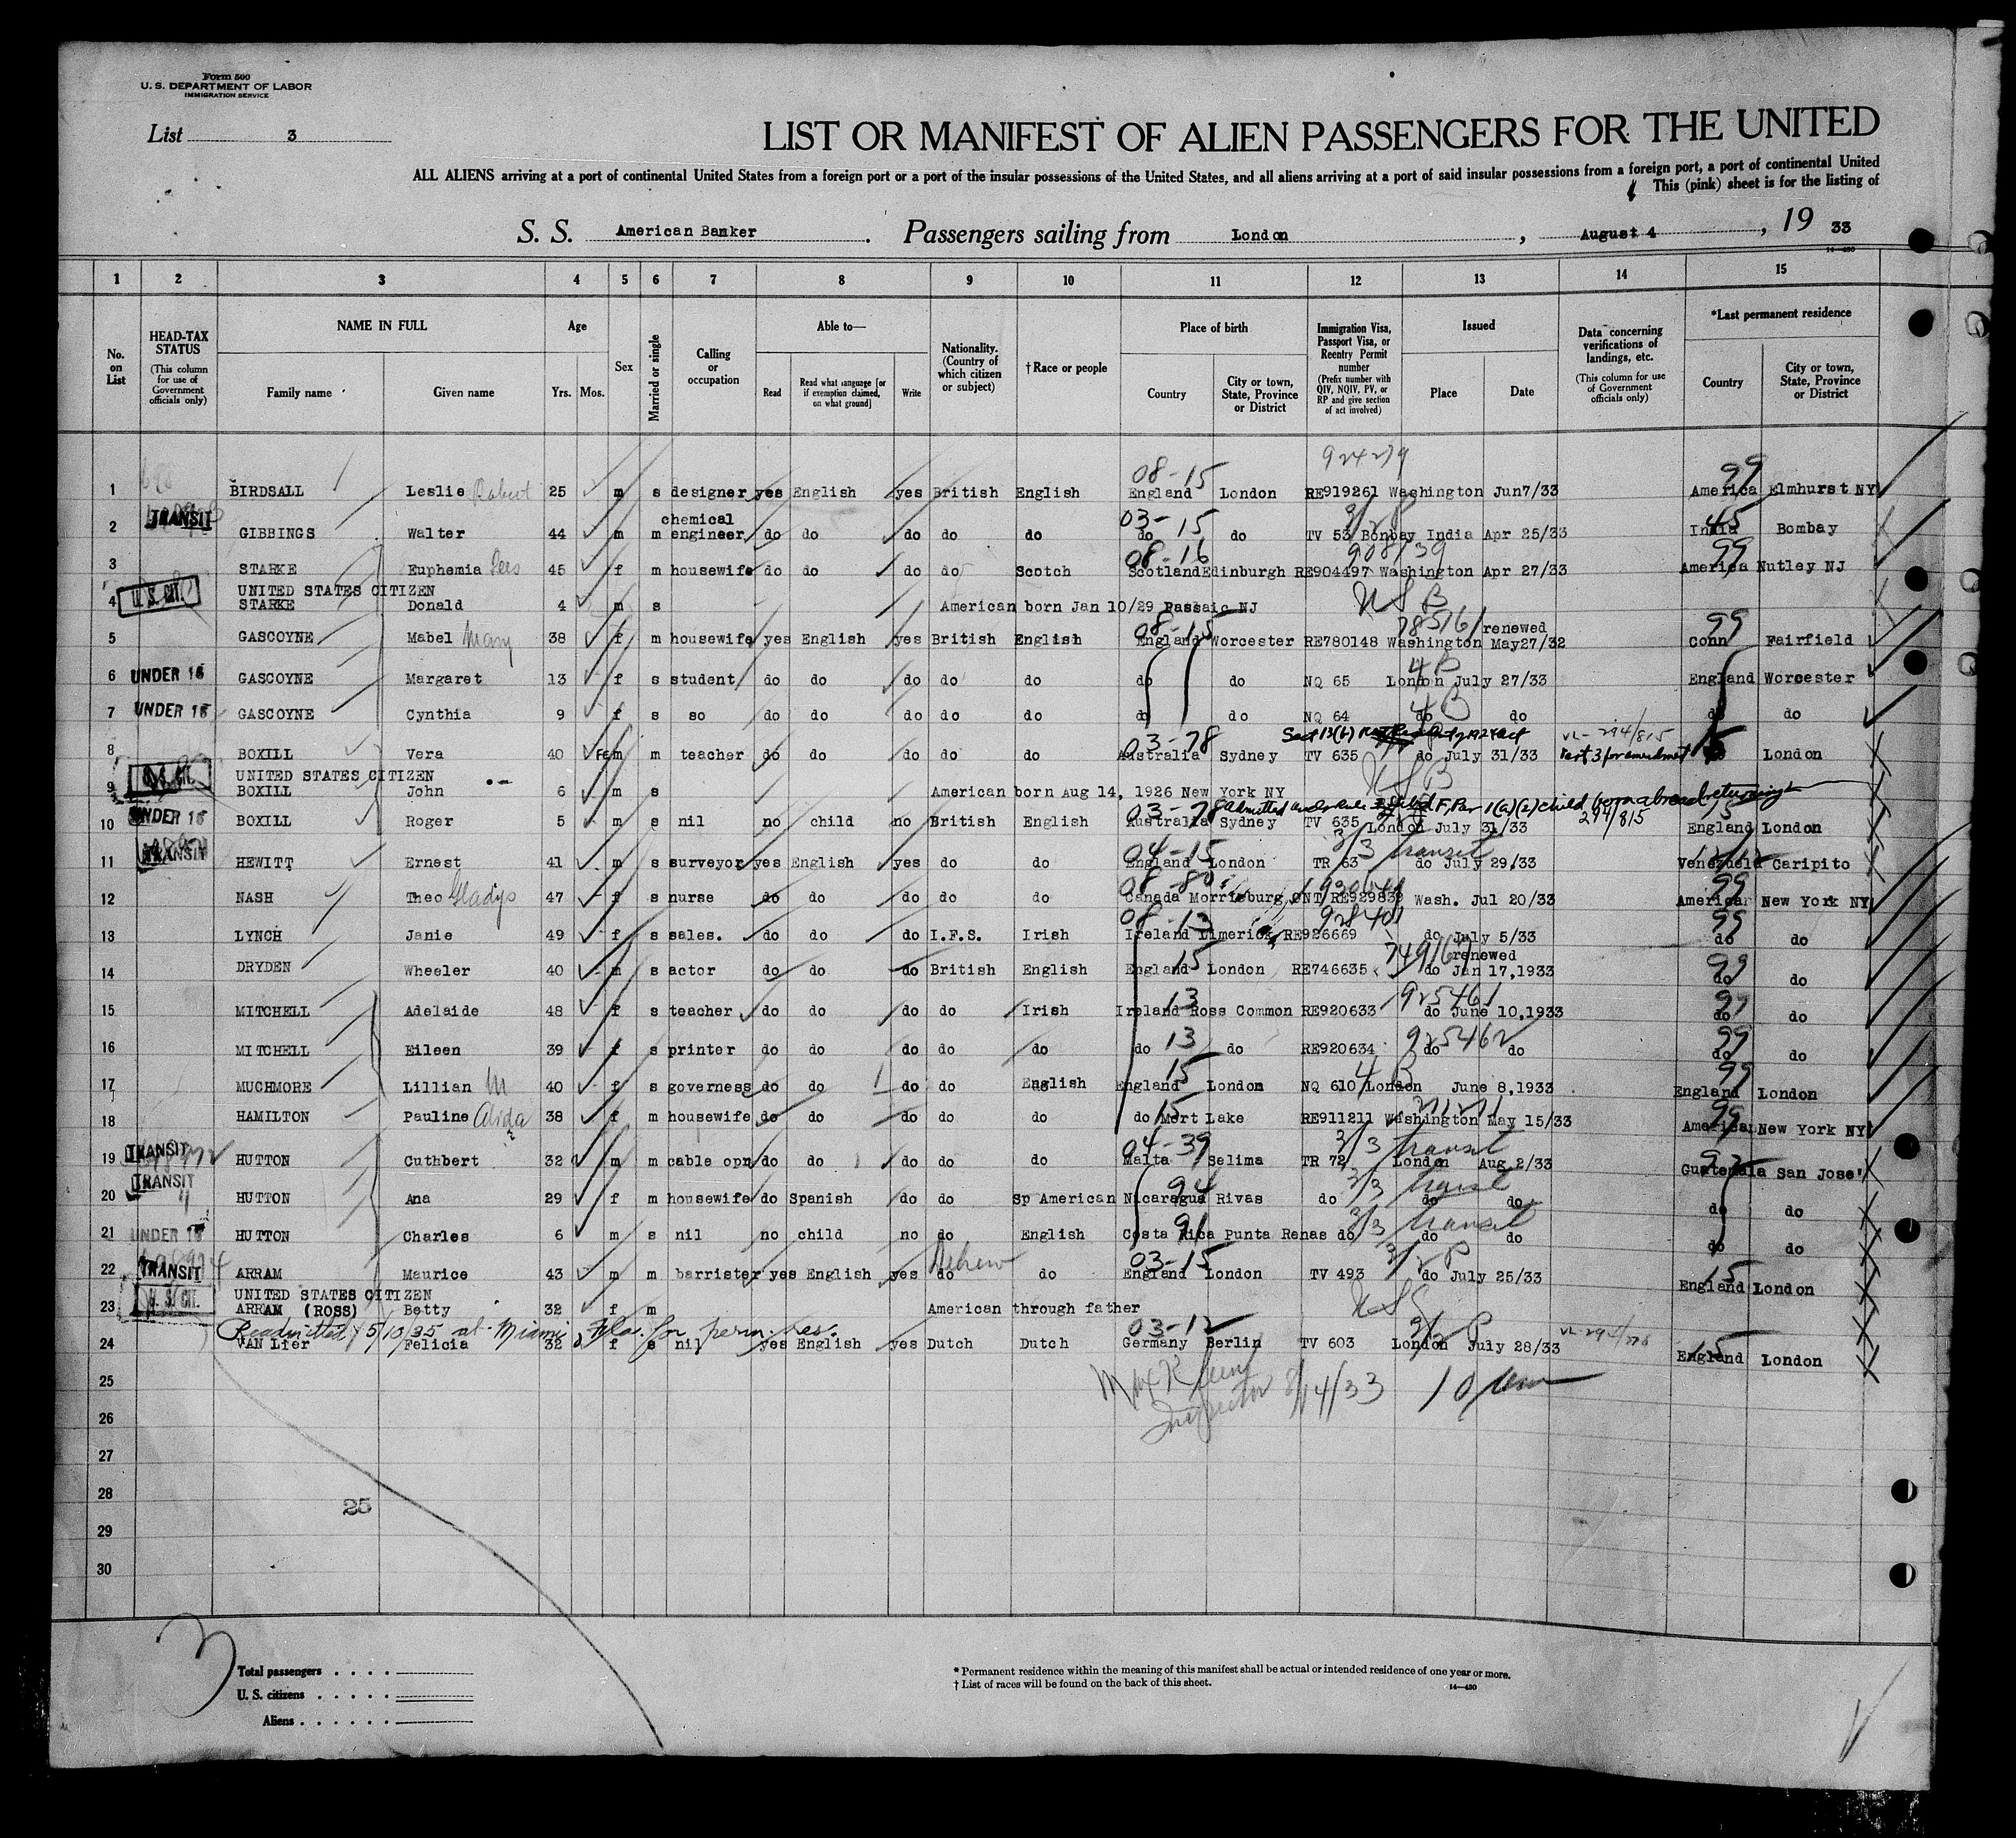 Form 500
U. S. DEPARTMENT OF LABOR
IMMIGRATION SERVICE
List 3
LIST OR MANIFEST OF ALIEN PASSENGERS FOR THE UNITED
ALL ALIENS arriving at a port of continental United States from a foreign port or a port of the insular possessions of the United States, and all aliens arriving at a port of said insular possessions from a foreign port, a port of continental United
This (pink) sheet is for the listing of
S. S. American Banker. Passengers sailing from London, August 4, 19 33
14—430
1 2 3 4 5 6 7 8 9 10 11 12 13 14 15
No. on List
HEAD-TAX STATUS
(This column for use of Government officials only)
NAME IN FULL
Family name Given name
Age
Yrs. Mos.
Sex
Married or single
Calling or occupation
Able to—
Read
Read what language [or if exemption claimed, on what ground]
Write
Nationality. (Country of which citizen or subject)
† Race or people
Place of birth
Country
City or town, State, Province or District
Immigration Visa, Passport Visa, or Reentry Permit number
(Prefix number with QIV, NQIV, PV, or RP and give section of act involved)
Issued
Place Date
Data concerning verifications of landings, etc.
(This column for use of Government officials only)
*Last permanent residence
Country
City or town, State, Province or District
08-15 924279 99
1 BIRDSALL Leslie Robert 25 m s designer yes English yes British English England London RE919261 Washington Jun7/33 America Elmhurst NY
TRANSIT chemical 03-15 3/2P 45
2 GIBBINGS Walter 44 m m engineer do do do do do do do TV 53 Bombay India Apr 25/33 India Bombay
08-16 908139 99
3 STARKE Euphemia 45 f m housewife do do do do Scotch Scotland Edinburgh RE904497 Washington Apr 27/33 America Nutley NJ
U. S. CIT. UNITED STATES CITIZEN
4 STARKE Donald 4 m s American born Jan 10/29 Passaic NJ USB
08-15 785161 renewed 99
5 GASCOYNE Mabel Mary 38 f m housewife yes English yes British English England Worcester RE780148 Washington May27/32 Conn Fairfield
4B
6 UNDER 16 GASCOYNE Margaret 13 f s student do do do do do do do NQ 65 London July 27/33 England Worcester
4B
7 UNDER 16 GASCOYNE Cynthia 9 f s so do do do do do do do NQ 64 do do do do
03-78 294/815
8 BOXILL Vera 40 Fem m teacher do do do do do Australia Sydney TV 635 do July 31/33 London
U. S. CIT. UNITED STATES CITIZEN
9 BOXILL John 6 m s American born Aug 14, 1926 New York NY USB
UNDER 16 03-78 child born abroad returning 294/815
10 BOXILL Roger 5 m s nil no child no British English Australia Sydney TV 635 London July 31/33 England London
TRANSIT 04-15 3/3 transit
11 HEWITT Ernest 41 m s surveyor yes English yes do do England London TR 63 do July 29,33 Venezuela Caripito
08-80 99
12 NASH Theo Gladys 47 f s nurse do do do do do Canada Morrisburg ONT RE929839 Wash. Jul 20/33 America New York NY
08-13 928401 99
13 LYNCH Janie 49 f s sales. do do do I.F.S. Irish Ireland Limerick RE926669 do July 5/33 do do
15 749167 renewed 99
14 DRYDEN Wheeler 40 m s actor do do do British English England London RE746635 do Jan 17,1933 do do
13 925461 99
15 MITCHELL Adelaide 48 f s teacher do do do do Irish Ireland Ross Common RE920633 do June 10,1933 do do
13 925462 99
16 MITCHELL Eileen 39 f s printer do do do do do do do RE920634 do do do do
15 4B 99
17 MUCHMORE Lillian M 40 f s governess do do do do English England London NQ 610 London June 8,1933 England London
15 99
18 HAMILTON Pauline 38 f m housewife do do do do do do Mort Lake RE911211 Washington May 15/33 America New York NY
TRANSIT 04-39 3/3 transit
19 HUTTON Cuthbert 32 m m cable opr do do do do do Malta Selima TR 72 London Aug 2/33 Guatemala San Jose
TRANSIT 94 3/3 transit
20 HUTTON Ana 29 f m housewife do Spanish do do Sp American Nicaragua Rivas do do do do do
UNDER 16 91 3/3 transit
21 HUTTON Charles 6 m s nil no child no do English Costa Rica Punta Renas do do do do do
TRANSIT Hebrew 03-15 3/2P 15
22 ARRAM Maurice 43 m m barrister yes English yes do do England London TV 493 do July 25/33 England London
U. S. CIT. UNITED STATES CITIZEN
23 ARRAM (ROSS) Betty 32 f m American through father
Readmitted 5/10/35 at Miami Fla. for perm. res. 03-12 15
24 VAN Lier Felicia 32 f s nil yes English yes Dutch Dutch Germany Berlin TV 603 London July 28/33 England London
25 8/14/33
Inspector
26
27
28
25
29
30
3
Total passengers
U. S. citizens
Aliens
* Permanent residence within the meaning of this manifest shall be actual or intended residence of one year or more.
† List of races will be found on the back of this sheet.
14—430